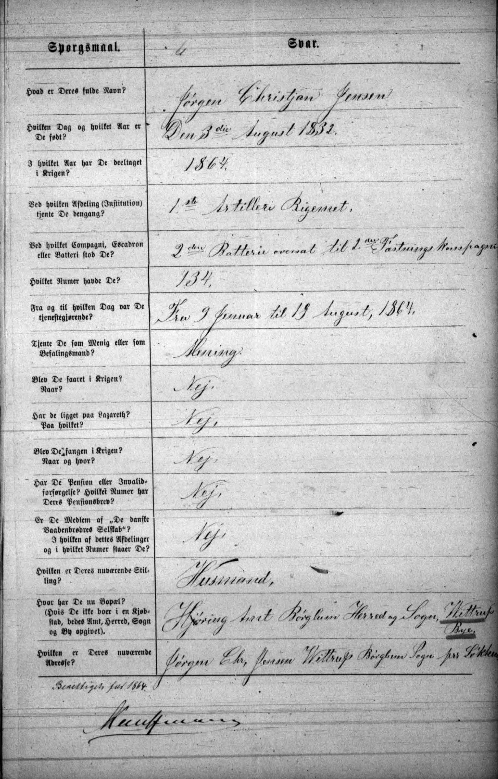 Spørgsmaal. Svar.
Hvad er Deres fulde Navn? Jørgen Christjan Jensen
Hvilken Dag og hvilket Aar er
De født? Den 3die August 1832.
I hvilket Aar har De deeltaget
i Krigen? 1864.
Ved hvilken Afdeling (Institution)
tjente De dengang? 1ste Artilleri Rigemet.
Ved hvilket Compagni, Escadron
eller Batteri stod De? 2den Batterie oversat til 2den Fæstnings Kompagni
Hvilket Numer havde De? 134.
Fra og til hvilken Dag var De
tjenestgjørende? Fra 9 Januar til 19 August, 1864.
Tjente De som Menig eller som
Befalingsmand? Mening
Blev De saaret i Krigen?
Naar? Nej.
Har De ligget paa Lazareth?
Paa hvilket? Nej.
Blev De fangen i Krigen?
Naar og hvor? Nej.
Har De Pension eller Invalid-
forsørgelse? Hvilket Numer har
Deres Pensionsbrev? Nej.
Er De Medlem af „De danske
Vaabenbrødres Selskab"?
I hvilken af dettes Afdelinger
og i hvilket Numer staaer De? Nej.
Hvilken er Deres nuværende Stil-
ling? Husmand,
Hvor har De nu Bopæl?
(Hvis De ikke boer i en Kjøb-
stad, bedes Amt, Herred, Sogn
og By opgivet). Hjøring Amt Børglum Herred og Sogn, Wittrup
Bye,
Hvilken er Deres nuværende
Adresse? Jørgen Chr, Jensen Wittrup Børglum Sogn pr Løkken
Berettiget for 1864.